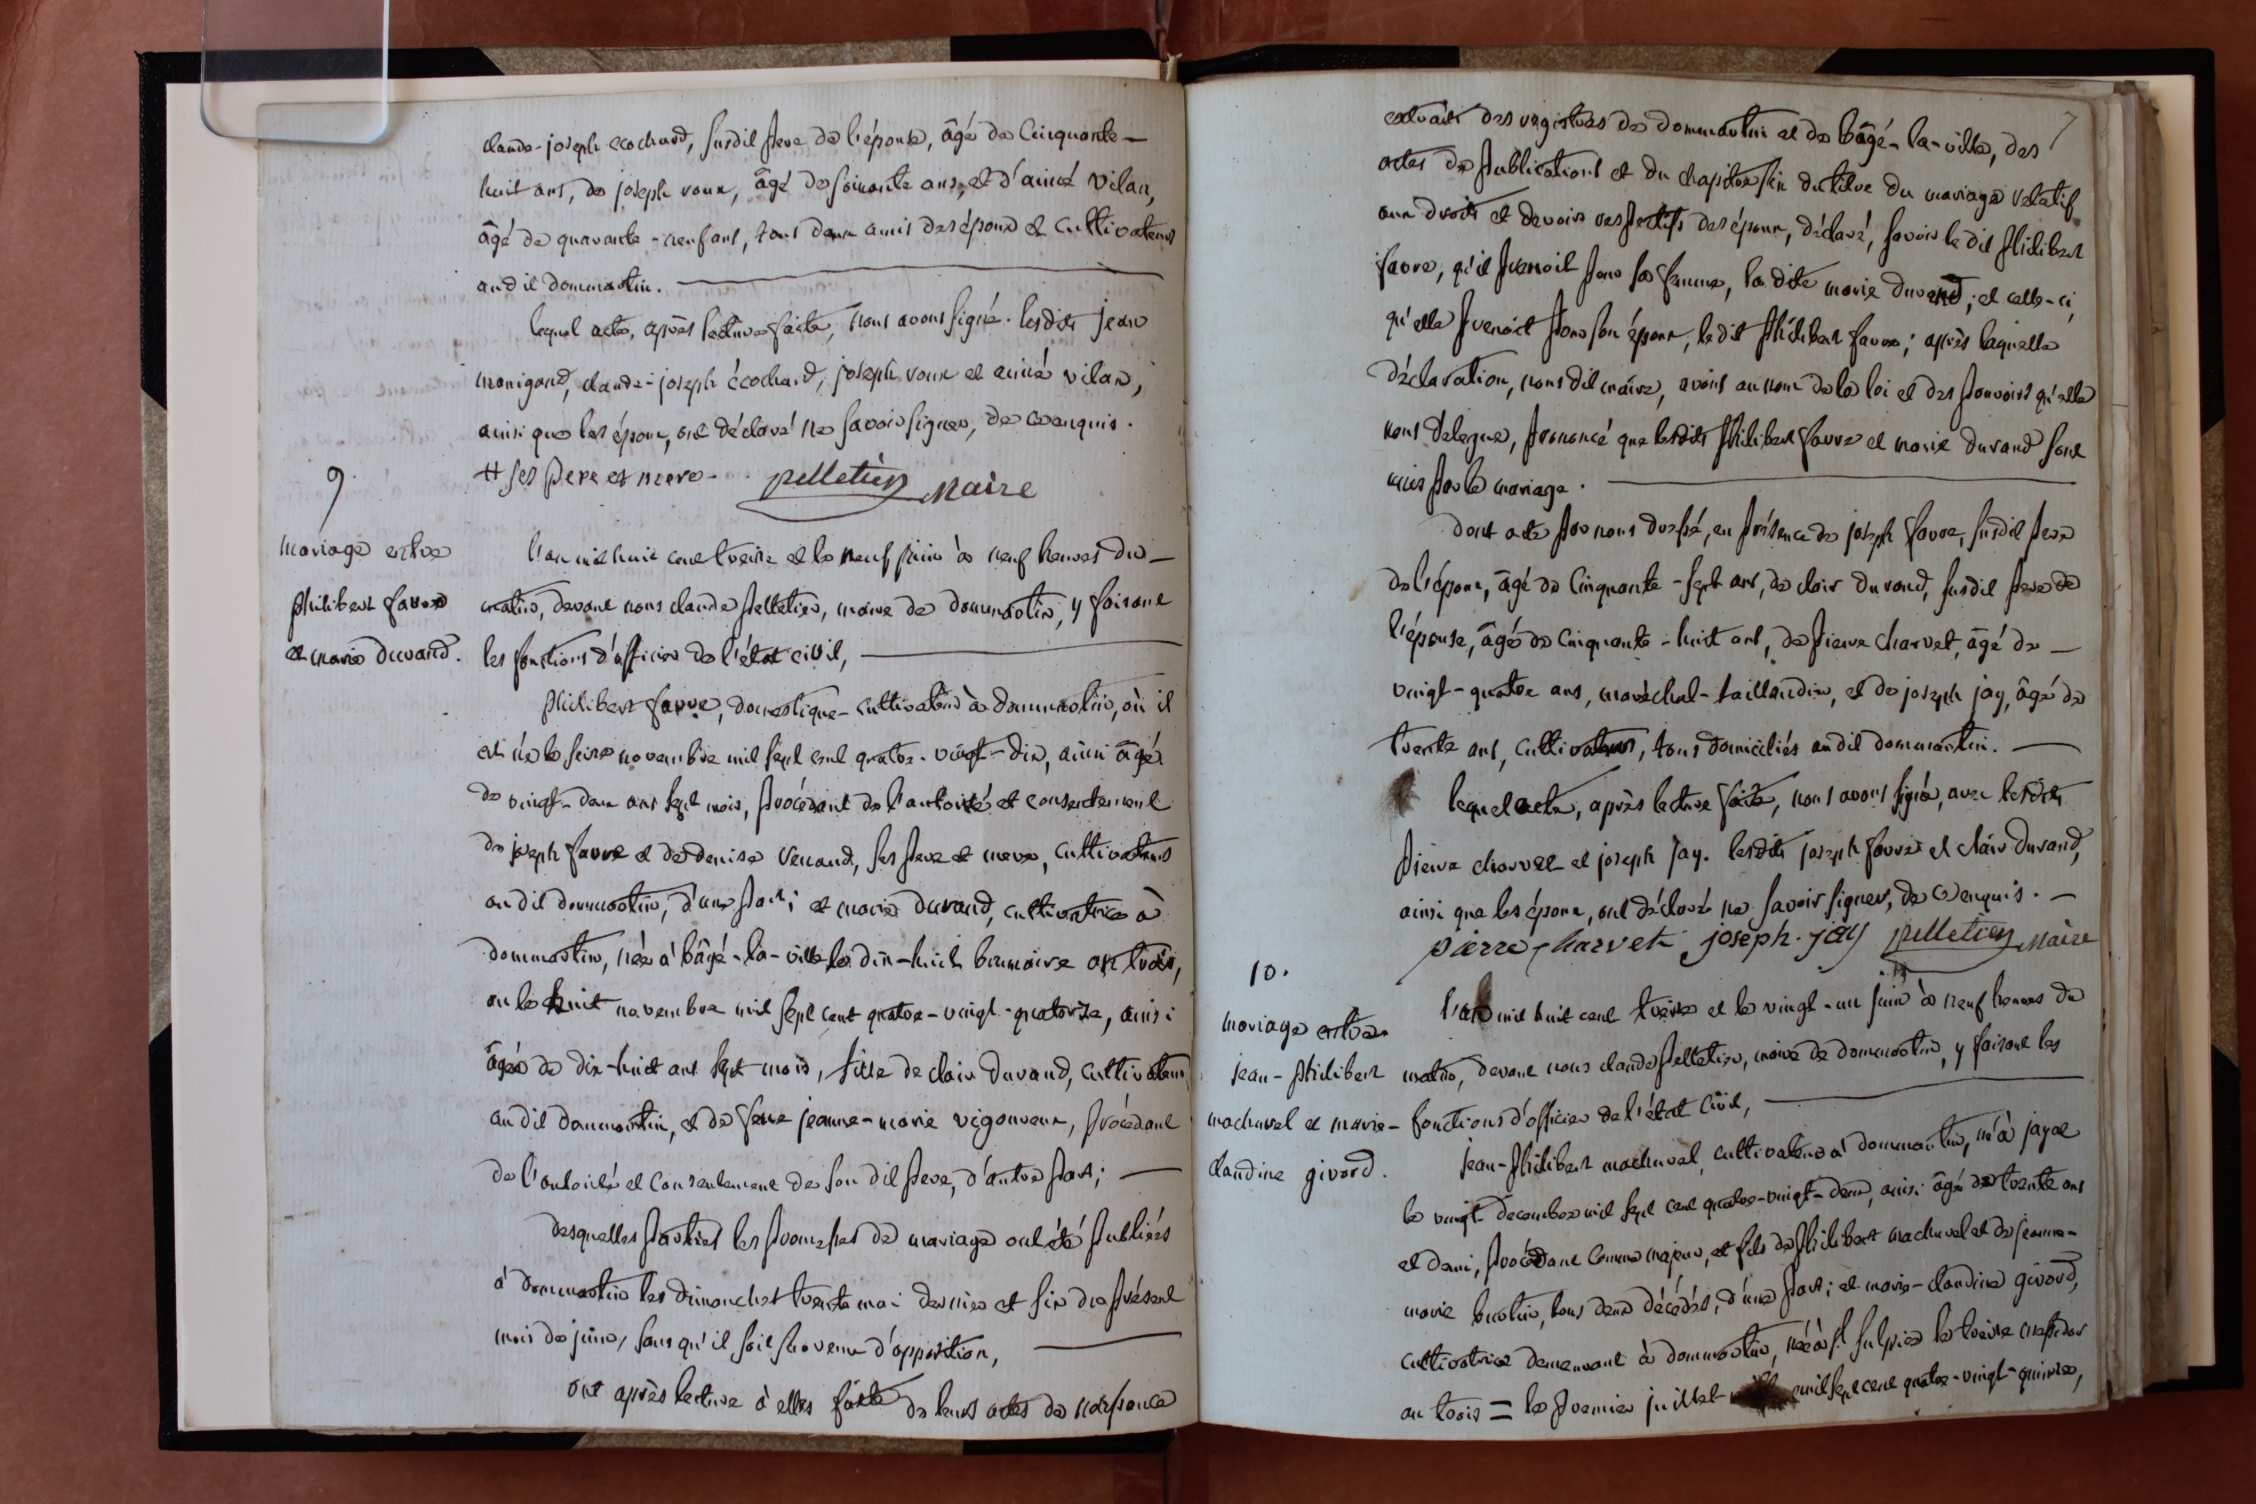 claude-joseph ecochard, susdit pere de l'épouse, âgé de cinquante-
huit ans, de joseph roux, âgé de soixante ans, et d'aimé vilar,
âgé de quarante-neuf ans, tous deux amis des époux et cultivateurs
audit dommartin.
lequel acte, après lecture faite, nous avons signé. lesdits jean
monigand, claude-joseph écochard, joseph roux et aimé vilar,
ainsi que les époux, ont déclaré ne savoir signer, de ce enquis.
# ses pere et mere - pelletier Maire
9.
mariage entre
philibert favre
et marie durand.
l'an mil huit cent treize et le neuf juin à neuf heures du
matin, devant nous claude pelletier, maire de dommartin, y faisant
les fonctions d'officier de l'état civil,
philibert favre, domestique-cultivateur à dommartin, où il
est né le seize novembre mil sept cent quatre-vingt-dix, ainsi âgé
de vingt-deux ans sept mois, procédant de l'autorité et consentement
de joseph favre et de denise renaud, ses pere et mere, cultivateurs
audit dommartin, d'une part; et marie durand, cultivatrice à
dommartin, née à bâgé-la-ville le dix-huit brumaire an trois,
ou le huit novembre mil sept cent quatre-vingt-quatorze, ainsi
âgée de dix-huit ans sept mois, fille de clair durand, cultivateur
audit dommartin, et de feue jeanne-marie vigoureux, procédant
de l'autorité et consentement de son dit pere, d'autre part;
desquelles parties les promesses de mariage ont été publiées
à dommartin les dimanches trente mai dernier et six du présent
mois de juin, sans qu'il soit survenu d'opposition,
ont après lecture à elles faite de leurs actes de naissance
7
extraits des registres de dommartin et de bâgé-la-ville, des
actes de publications et du chapitre six du titre du mariage relatif
aux droits et devoirs respectifs des époux, déclaré, savoir ledit philibert
favre, qu'il prenoit pour sa femme, la dite marie durand; et celle-ci,
qu'elle prenoit pour son époux, ledit philibert favre; après laquelle
déclaration, nous dit maire, avons au nom de la loi et des pouvoirs qu'elle
nous délegue, prononcé que lesdits philibert favre et marie durand sont
unis par le mariage.
dont acte par nous dressé, en présence de joseph favre, susdit pere
de l'époux, âgé de cinquante-sept ans, de clair durand, susdit pere de
l'épouse, âgé de cinquante-huit ans, de pierre charvet, âgé de
vingt-quatre ans, maréchal-taillandier, et de joseph jay, âgé de
trente ans, cultivateur, tous domiciliés audit dommartin.
lequel acte, après lecture faite, nous avons signé, avec lesdits
pierre charvet et joseph jay. lesdits joseph favre et clair durand,
ainsi que les époux, ont déclaré ne savoir signer, de ce enquis.
pierre charvet joseph. jay pelletier Maire
10.
mariage entre
jean-philibert
machurel et marie-
claudine givord.
l'an mil huit cent treize et le vingt-un juin à neuf heures du
matin, devant nous claude pelletier, maire de dommartin, y faisant les
fonctions d'officier de l'état civil,
jean-philibert machurel, cultivateur à dommartin, né à jayat
le vingt decembre mil sept cent quatre-vingt-deux, ainsi âgé de trente ans
et demi, procédant comme majeur, et fils de philibert machurel et de jeanne-
marie tous deux décédés, d'une part; et marie-claudine givord,
cultivatrice demeurant à dommartin, née à st. sulpice le treize messidor
an trois = le premier juillet mil sept cent quatre-vingt-quinze,